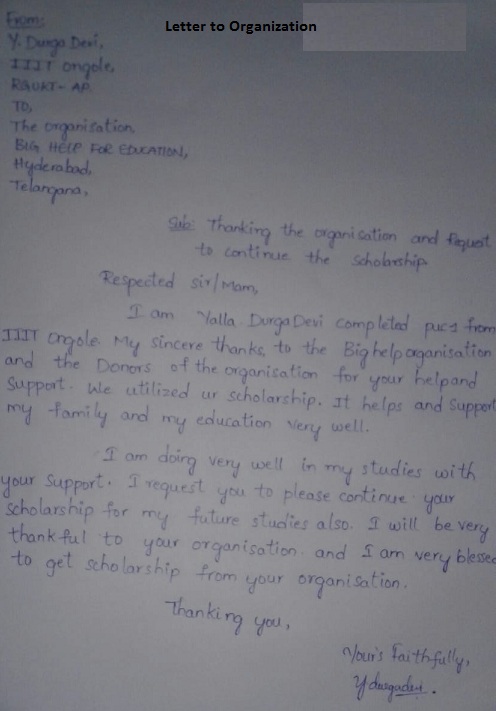 Letter to Organization
From:
Y. Durga Devi,
IIIT ongole,
RGUKT- AP.
TO,
The organisation,
BIG HELP FOR EDUCATION,
Hyderabad,
Telangana,
Sub: Thanking the organisation and Request
to continue the scholarship.
Respected sir/Mam,
I am Yalla Durga Devi completed puc1 from
IIIT ongole. My sincere thanks, to the Big help organisation
and the Donors of the organisation for your help and
Support. We utilized ur scholarship. It helps and Support
my family and my education very well.
I am doing very well in my studies with
your support. I request you to please continue your
scholarship for my future studies also. I will be very
thankful to your organisation. and I am very blessed
to get scholarship from your organisation.
Thanking you,
Your's Faithfully,
Y durgadevi.